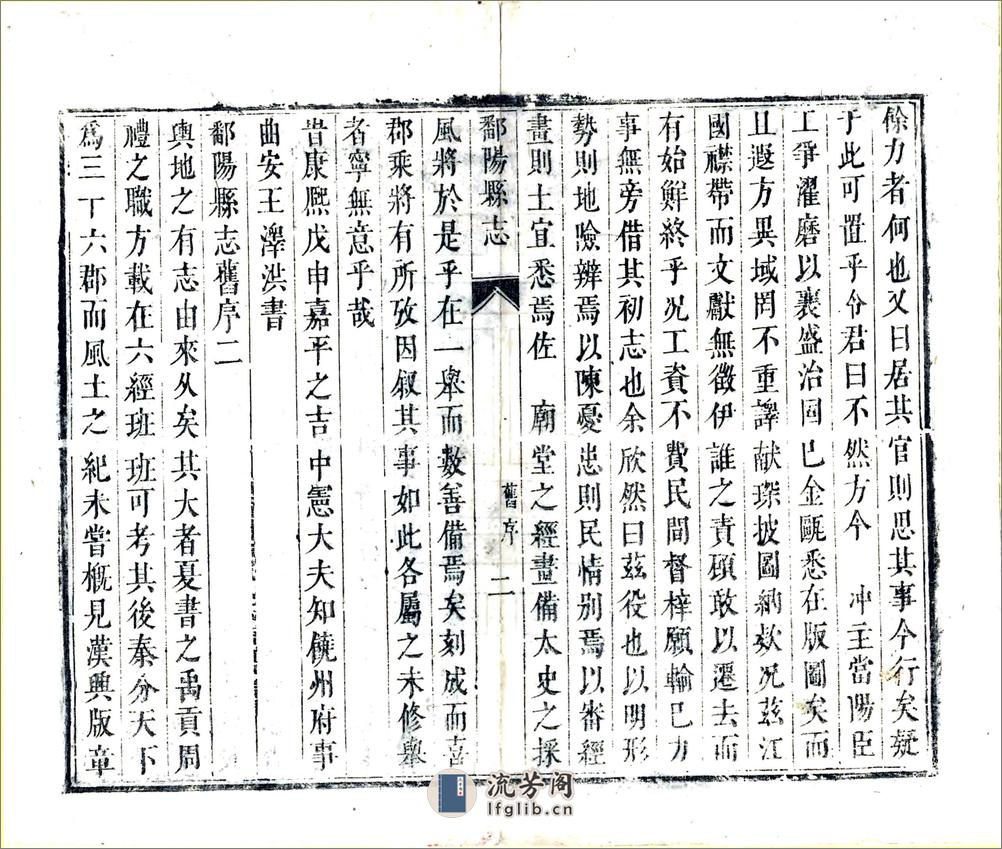 餘力者何也又曰居其官則思其事今行矣疑
于此可置乎兮君曰不然方今 冲主當陽臣
工爭濯磨以襄盛治囯巳金甌悉在版圖矣而
且遐方異域罔不重譯献琛披圖納欵况茲江
國襟帶而文獻無徵伊誰之責碩敢以遷去而
有始鮮終乎况工資不費民間督梓願輸已力
事無旁借其初志也余欣然曰茲役也以明形
勢則地險辨焉以陳憂患則民情別焉以審經
畫則土宜悉焉佐 廟堂之經畫備太史之採
鄱陽縣志 舊序 二
風將於是乎在一舉而數善備焉矣刻成而喜
郡乘將有所攷因叙其事如此各屬之未修舉
者寧無意乎哉
旹康熙戊申嘉平之吉中憲大夫知饒州府事
曲安王澤洪書
鄱陽縣志舊序二
輿地之有志由來乆矣其大者夏書之禹貢周
禮之職方載在六經班班可考其後秦分天下
爲三十六郡而風土之紀未嘗概見漢興版章
流芳阁
lfglib.cn